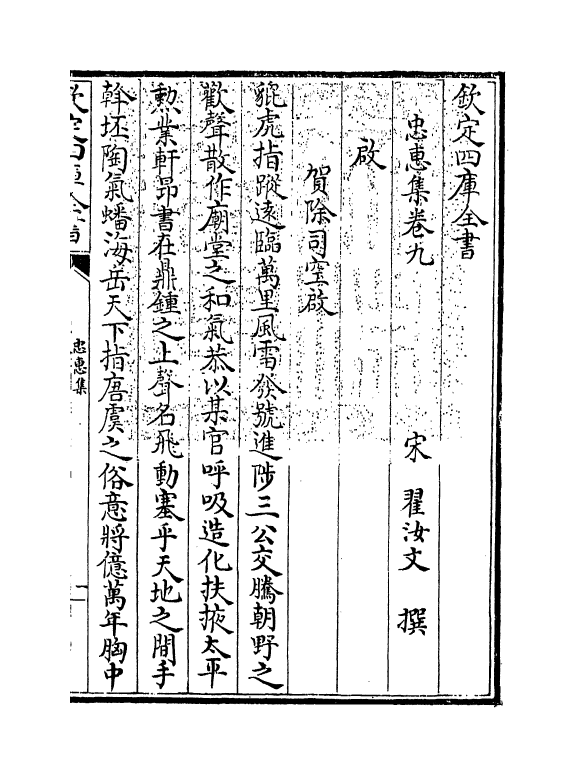 欽定四庫全書
忠惠集卷九
宋 翟汝文 撰
啟
賀除司空啟
貔虎指蹤遠臨萬里風雷發號進陟三公交騰朝野之
歡聲散作廟堂之和氣恭以某官呼吸造化扶掖太平
勲業軒昂書在鼎鍾之上聲名飛動塞乎天地之間手
斡坯陶氣蟠海岳天下指唐虞之俗意將億萬年胸中
欽定四庫全書
忠惠集
一